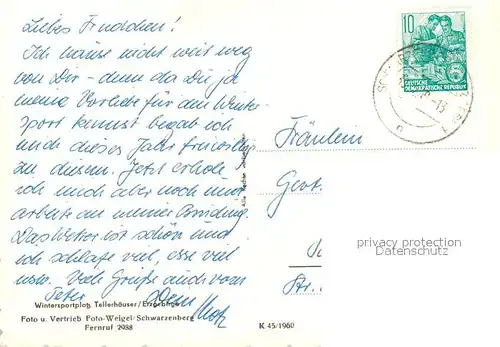 Liebes Frudchen!
Ich hause nicht weit weg
von Dir – denn da Du ja
meine Vorliebe für den Winter-
sport kennst begab ich
mich dieses Jahr freiwillig
zu diesem. Jetzt erhole
ich mich aber noch und
arbeite an meiner Bindung.
Das Wetter ist schön und
ich schlafe viel, esse viel
usw. Viele Grüße auch vom
Peter Dein
Wintersportplatz Tellerhäuser/Erzgebirge
Foto u. Vertrieb Foto-Weigel-Schwarzenberg
Fernruf 2988
K 45/1960
Alle Rechte
10
DEUTSCHE
DEMOKRATISCHE REPUBLIK
Fräulein
Gert.
Str.
privacy protection
Datenschutz